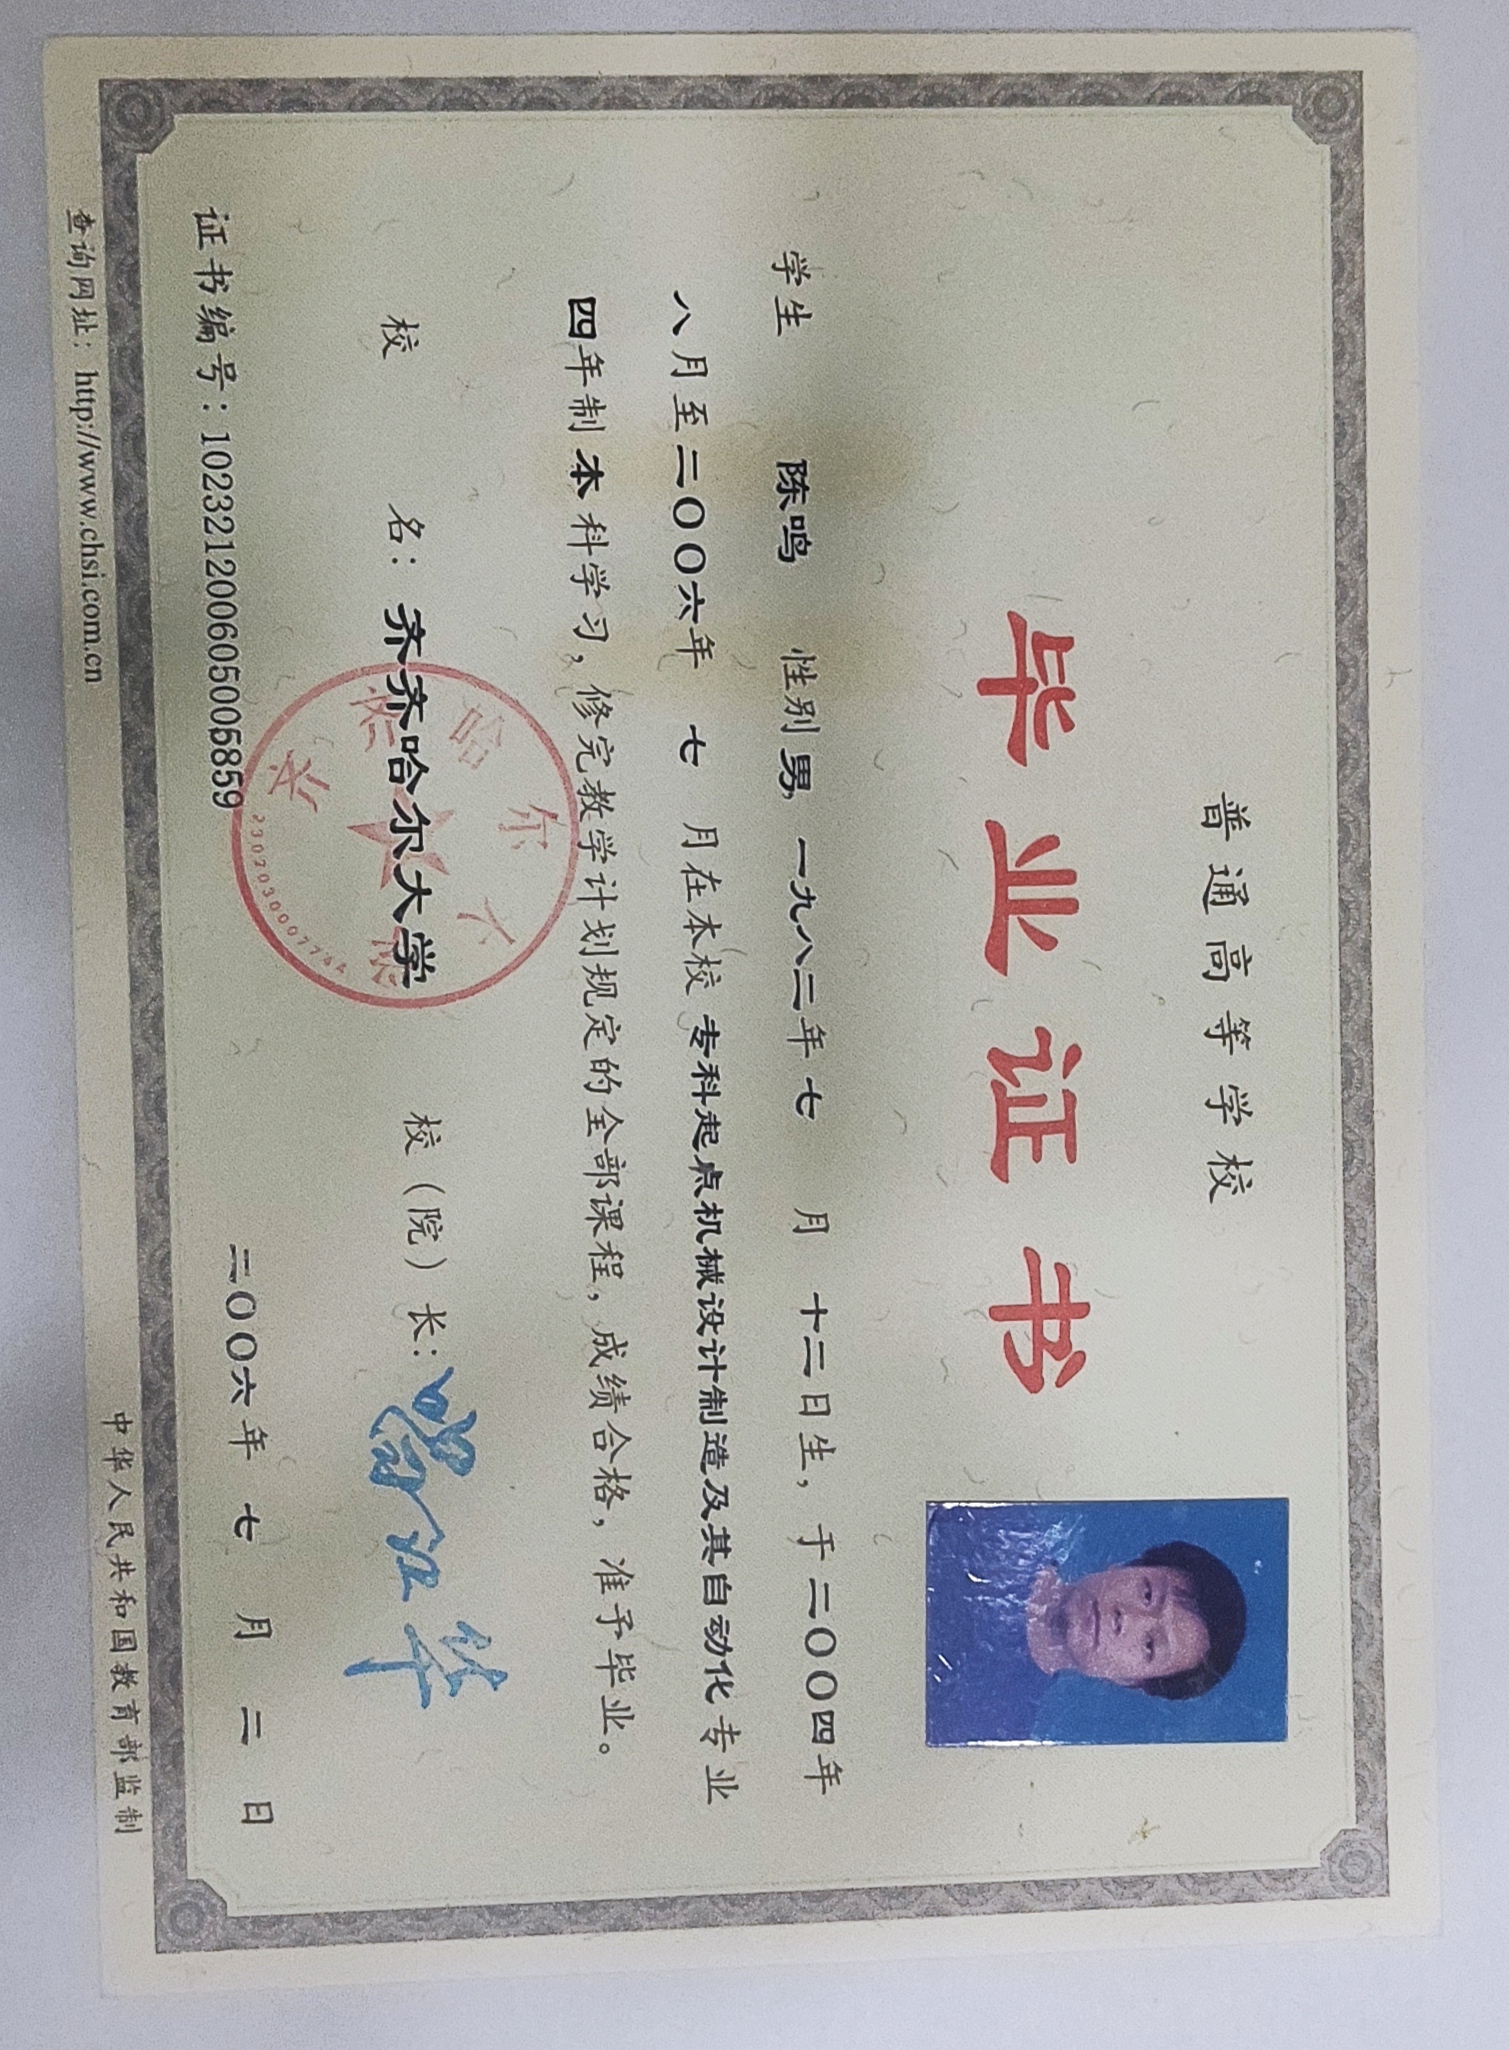 普通高等学校
毕业证书
学生 陈鸣 性别男, 一九八二年七月十二日生, 于二〇〇四年
八月至二〇〇六年七月在本校专科起点机械设计制造及其自动化专业
四年制本科学习, 修完教学计划规定的全部课程, 成绩合格, 准予毕业。
校 名: 齐齐哈尔大学 校（院）长:
证书编号: 102321200605005859 二〇〇六年七月二日
查询网址: http://www.chsi.com.cn 中华人民共和国教育部监制